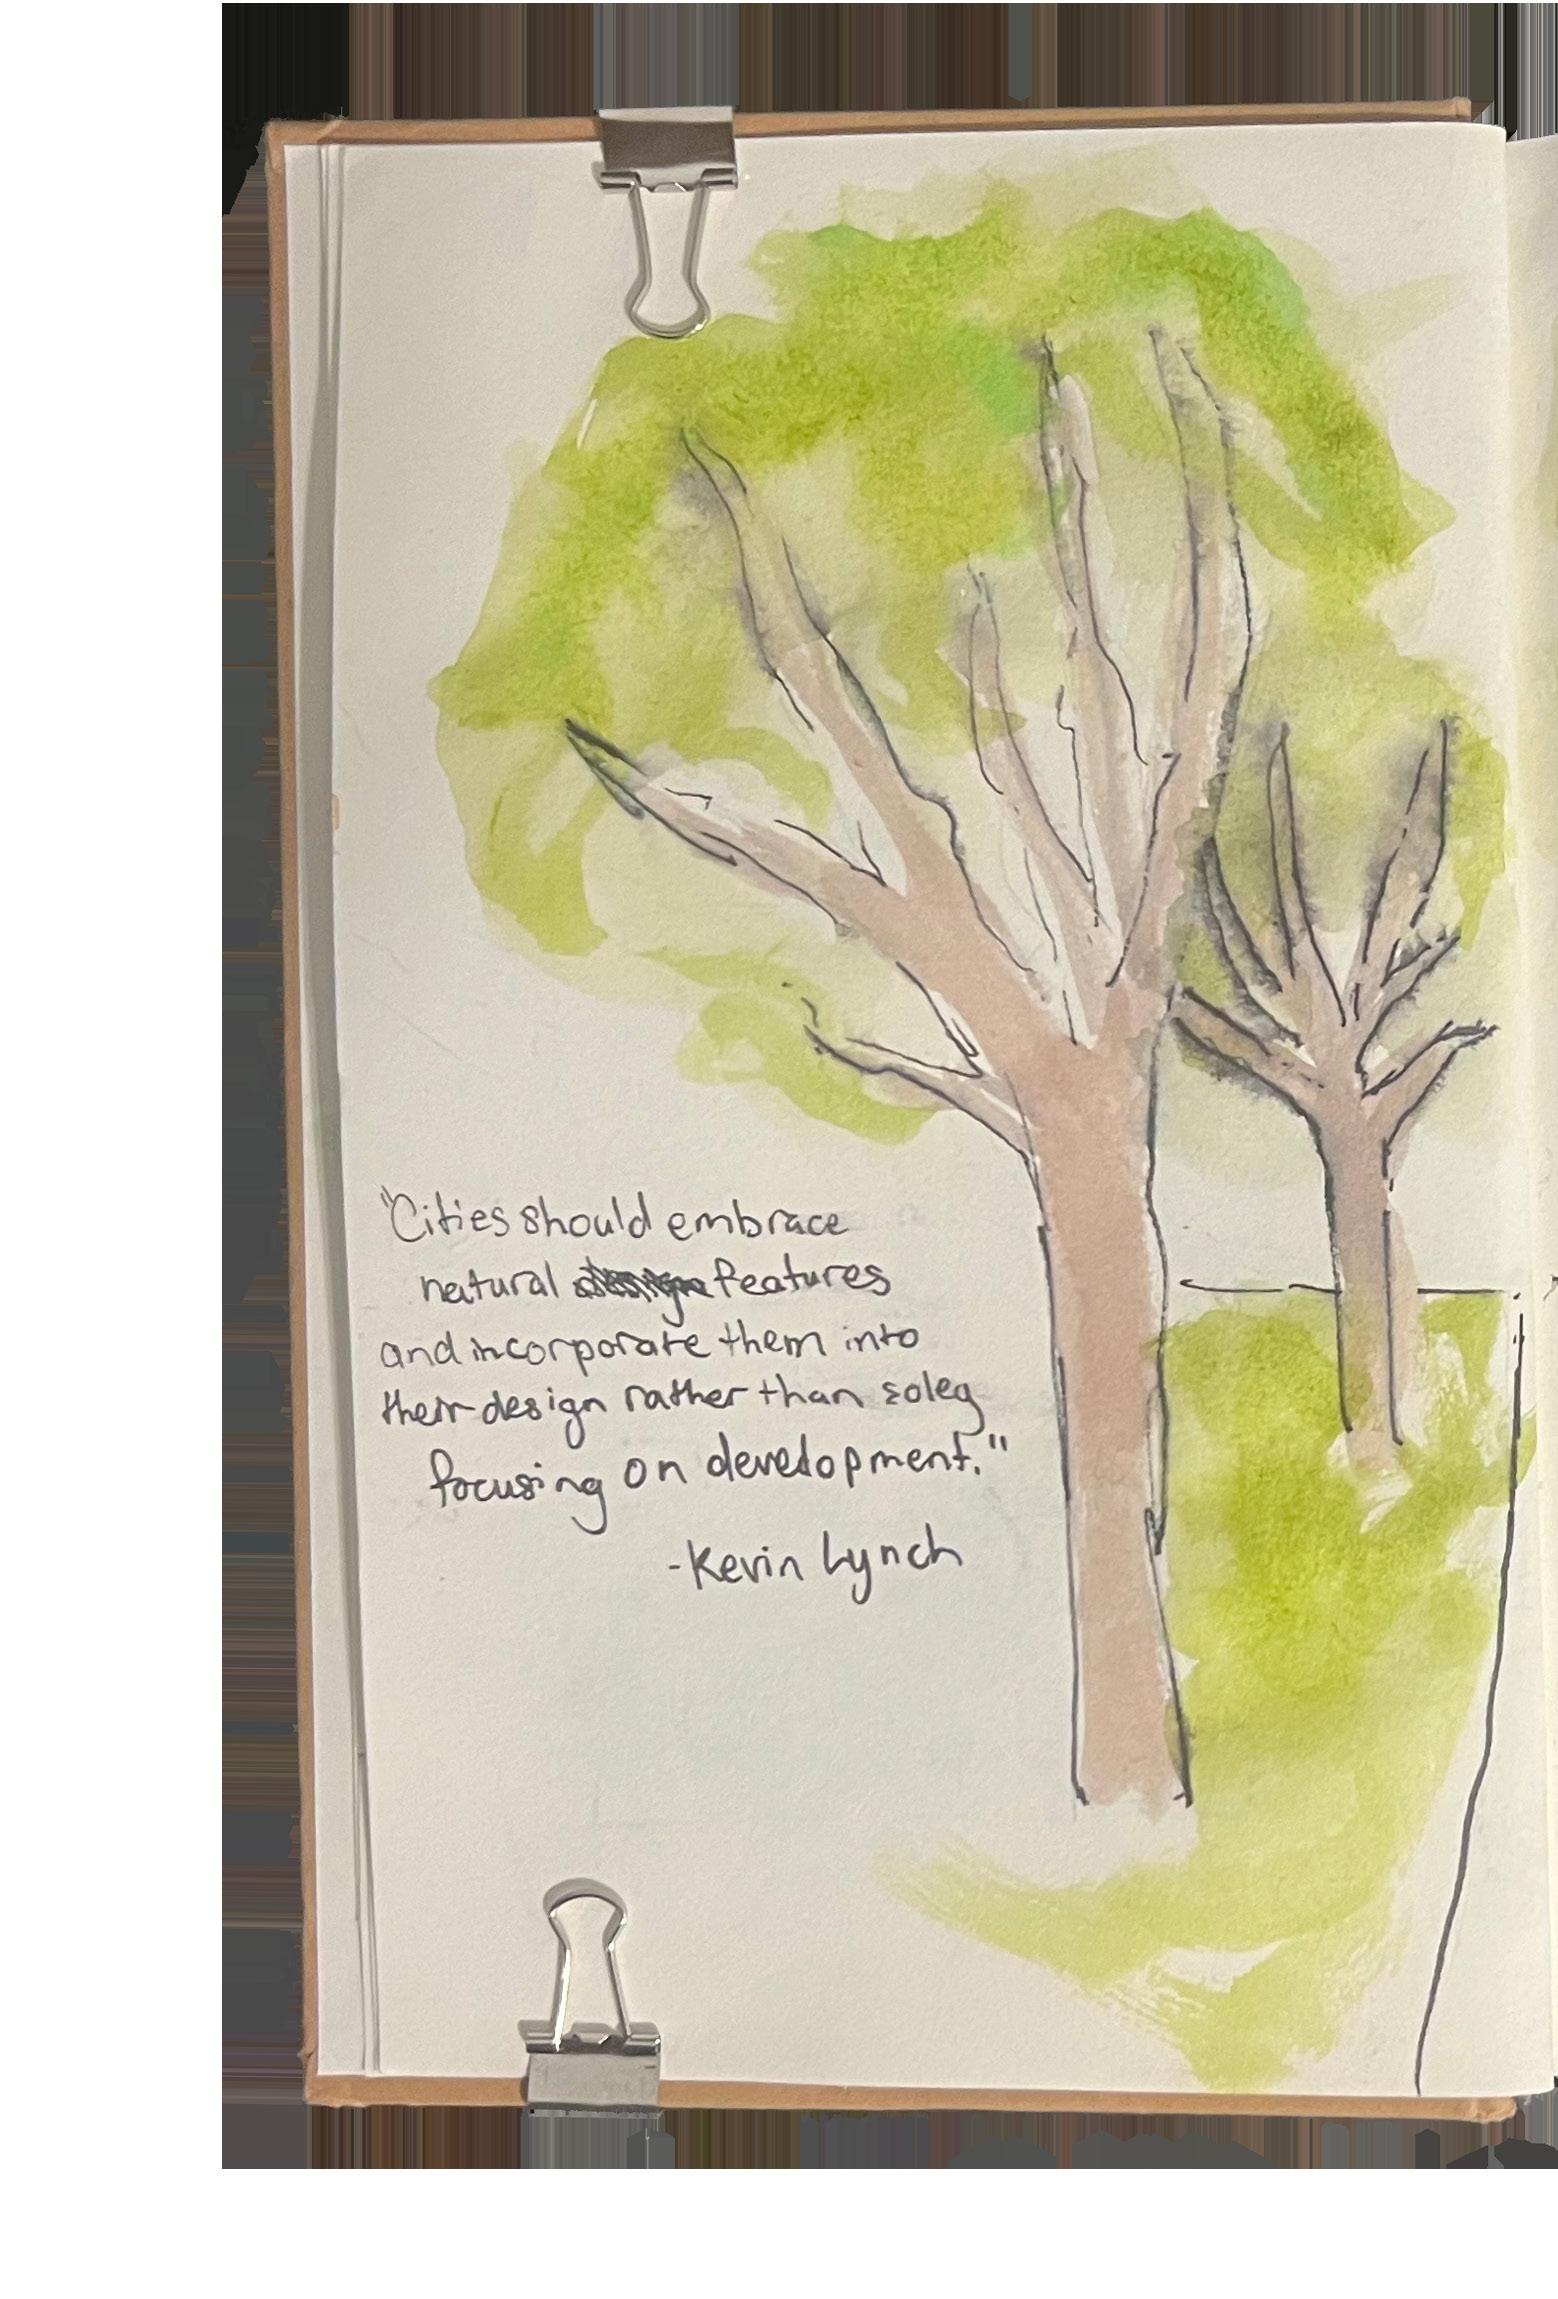 "Cities should embrace
natural features
and incorporate them into
their design rather than soley
focusing on development."
-Kevin Lynch